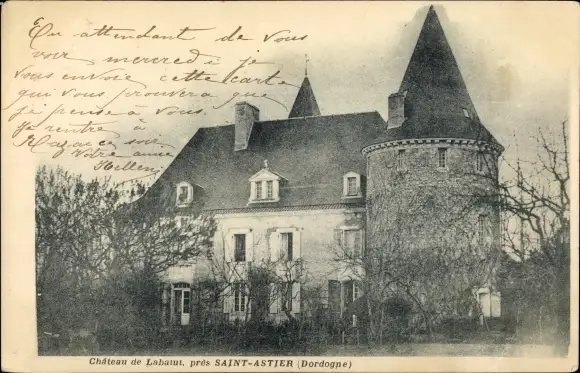 En attendant de vous
voir mercredi je
vous envoie cette carte
qui vous prouvera que
je pense à vous.
je rentre à
ce soir
votre amie
Hellen
Château de Labatut, près SAINT-ASTIER (Dordogne)